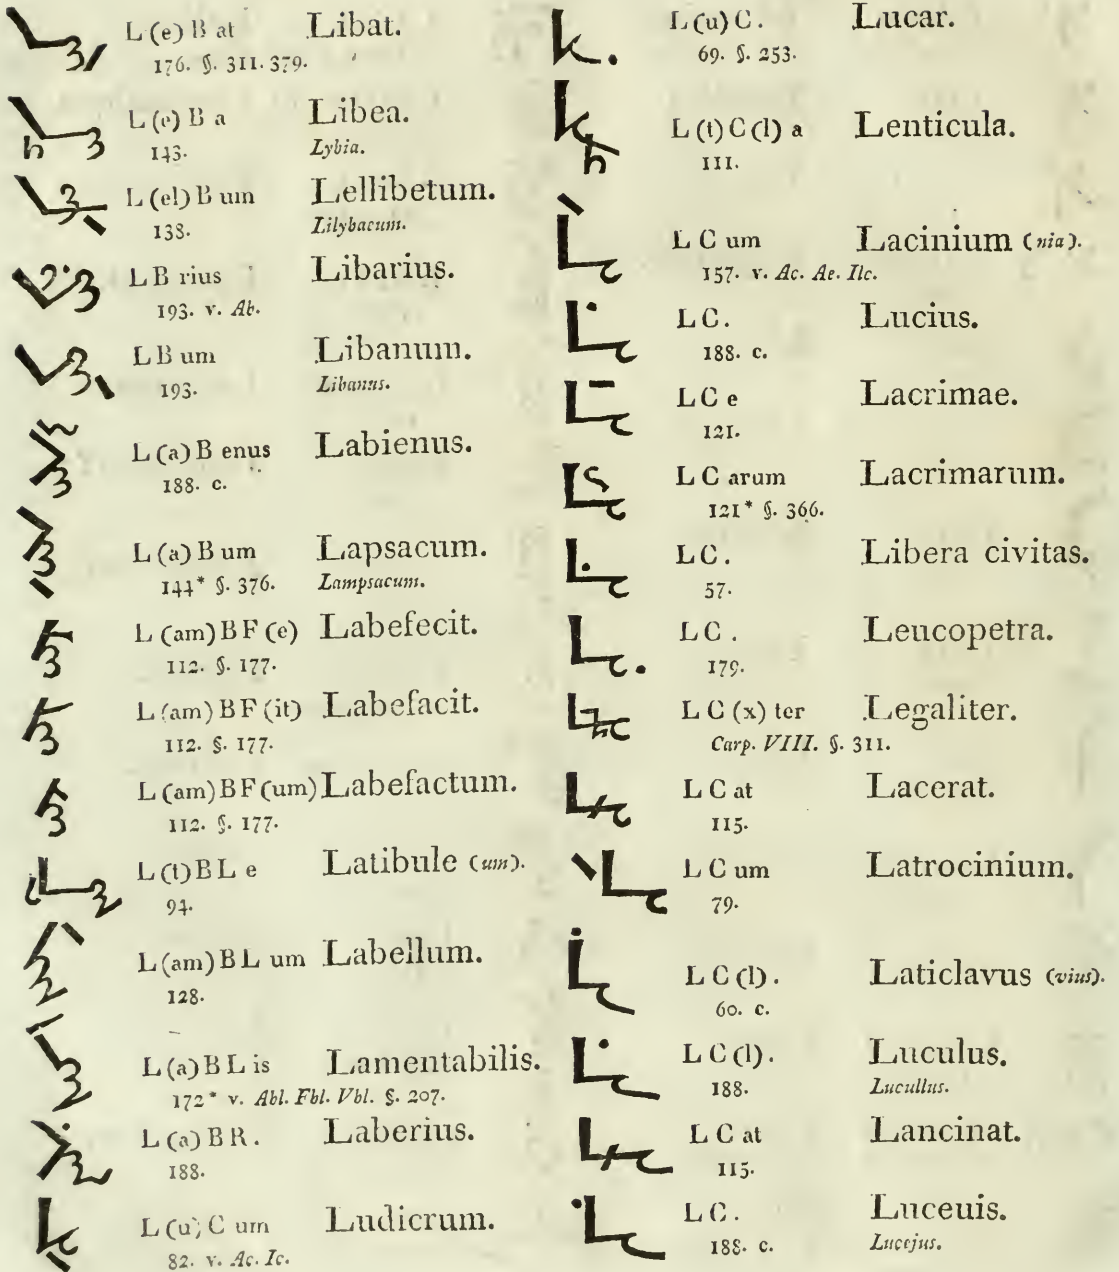 L (e) B at Libat.
176. §. 311. 379.
L (e) B a Libea.
143. Lybia.
L (el) B um Lellibetum.
138. Lilybaeum.
L B rius Libarius.
193. v. Ab.
L B um Libanum.
193. Libanus.
L (a) B enus Labienus.
188. c.
L (a) B um Lapsacum.
144* §. 376. Lampsacum.
L (am) B F (e) Labefecit.
112. §. 177.
L (am) B F (it) Labefacit.
112. §. 177.
L (am) B F (um) Labefactum.
112. §. 177.
L (t) B L e Latibule (um).
94.
L (am) B L um Labellum.
128.
L (a) B L is Lamentabilis.
172* v. Abl. Fbl. Vbl. §. 207.
L (a) B R. Laberius.
188.
L (u) C um Ludicrum.
82. v. Ac. Ic.
L (u) C. Lucar.
69. §. 253.
L (t) C (l) a Lenticula.
111.
L C um Lacinium (nia).
157. v. Ac. Ae. Ilc.
L C. Lucius.
188. c.
L C e Lacrimae.
121.
L C arum Lacrimarum.
121* §. 366.
L C. Libera civitas.
57.
L C. Leucopetra.
179.
L C (x) ter Legaliter.
Carp. VIII. §. 311.
L C at Lacerat.
115.
L C um Latrocinium.
79.
L C (l). Laticlavus (vius).
60. c.
L C (l). Luculus.
188. Lucullus.
L C at Lancinat.
115.
L C. Luceuis.
188. c. Lucejus.